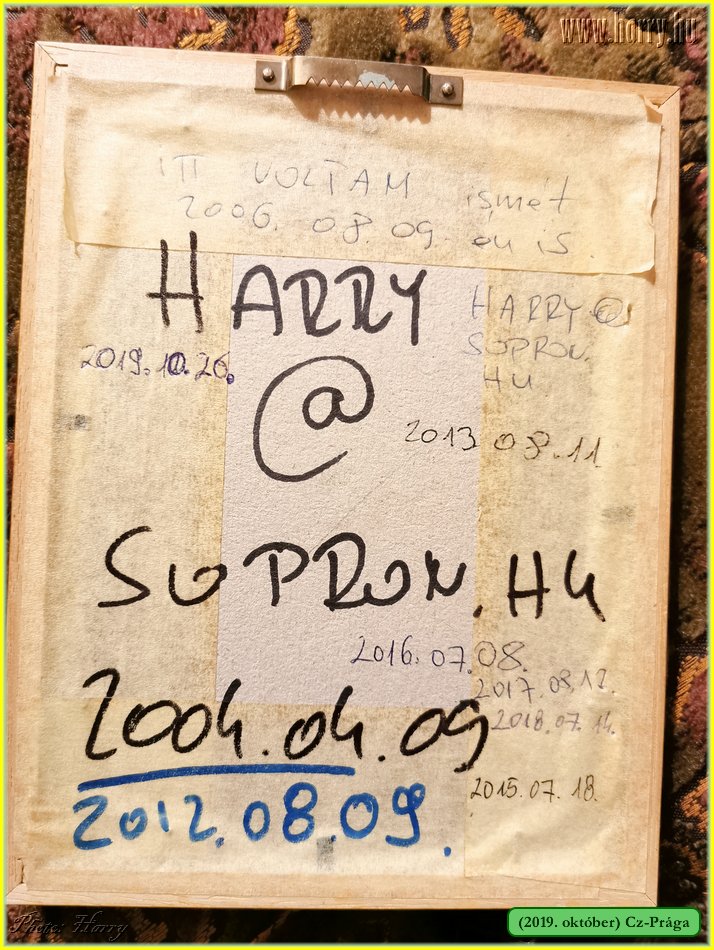 www.harry.hu
ITT VOLTAM ismét
2006. 08. 09. én is.
HARRY
HARRY@
SOPRON.
HU
2019.10.26.
@
2013 08.11
SOPRON.HU
2016.07.08.
2017.08.12.
2018.07.14.
2004.04.09
2015.07.18.
2012.08.09.
Photo: Harry
(2019. október) Cz-Prága